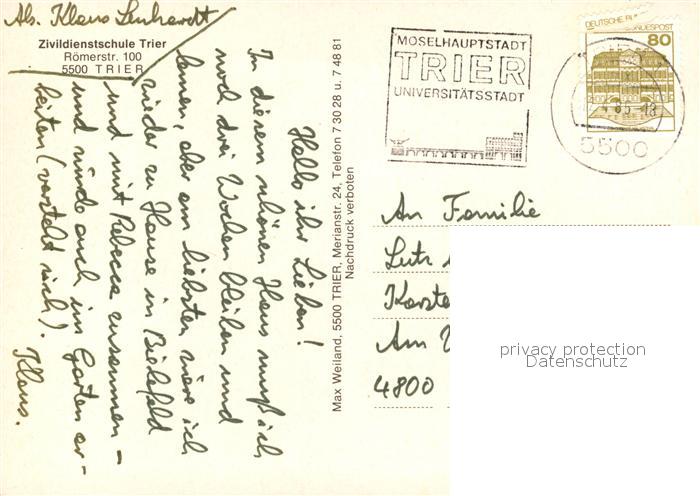 Abs. Klaus Lenhardt
Zivildienstschule Trier
Römerstr. 100
5500 TRIER
Hallo ihr Lieben!
In diesem schönen Haus muß ich
noch drei Wochen bleiben und
lernen, aber am liebsten wäre ich
wieder zu Hause in Bielefeld
und mit Rebecca zusammen -
und würde auch im Garten ar-
beiten (versteht sich).
Klaus.
Max Weiland, 5500 TRIER, Merianstr. 24, Telefon 7 30 28 u. 7 48 81
Nachdruck verboten
MOSELHAUPTSTADT
TRIER
UNIVERSITÄTSSTADT
80
5500
An Familie
Lutz
Am
4800
privacy protection
Datenschutz